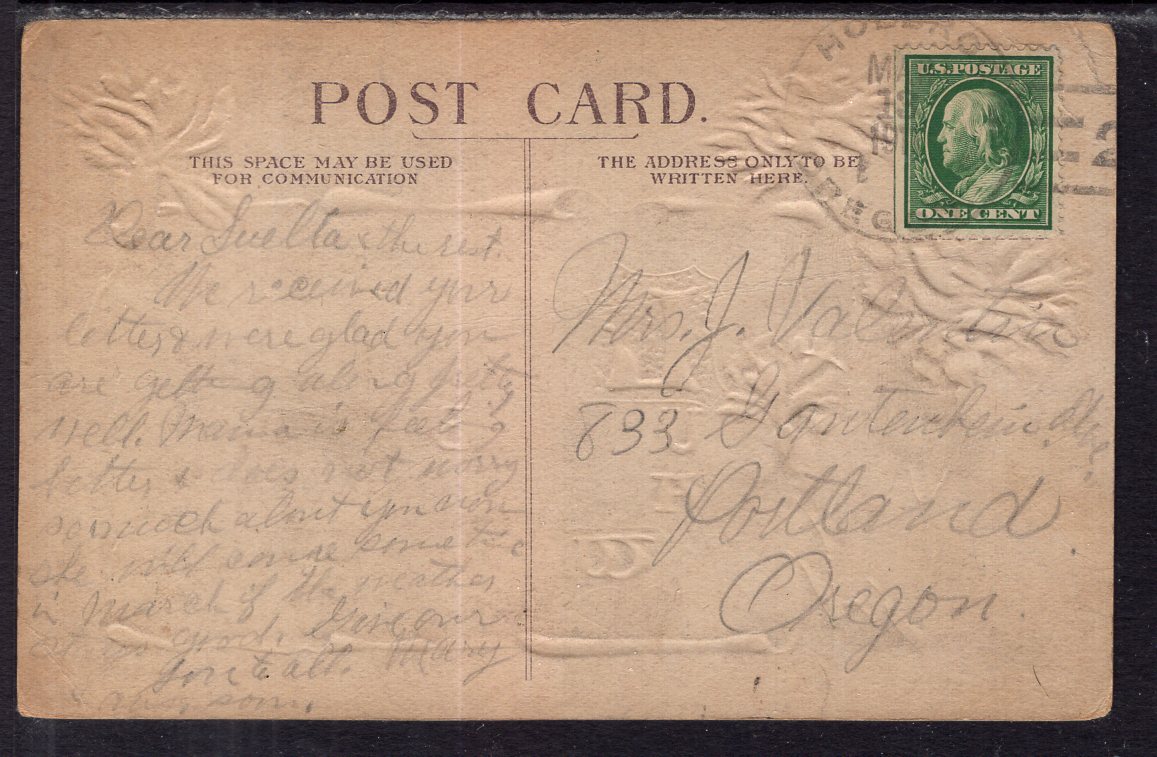 POST CARD.
THIS SPACE MAY BE USED
FOR COMMUNICATION
THE ADDRESS ONLY TO BE
WRITTEN HERE.
U.S. POSTAGE
ONE CENT
2
Dear & the rest.
We received your
letter & were glad you
are getting along
well. Mama is feeling
better & does not worry
so much about you
she will come some time
in March if the weather
is good. Give our
love to all. Mary
Mrs. J. Valentin
833 Gantenbein Ave.
Portland
Oregon.